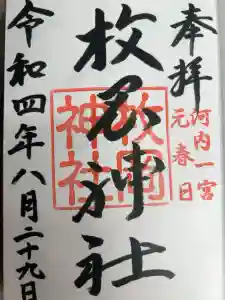 奉拝
河内一宮
元春日
枚岡神社
枚岡神社
令和四年八月二十九日